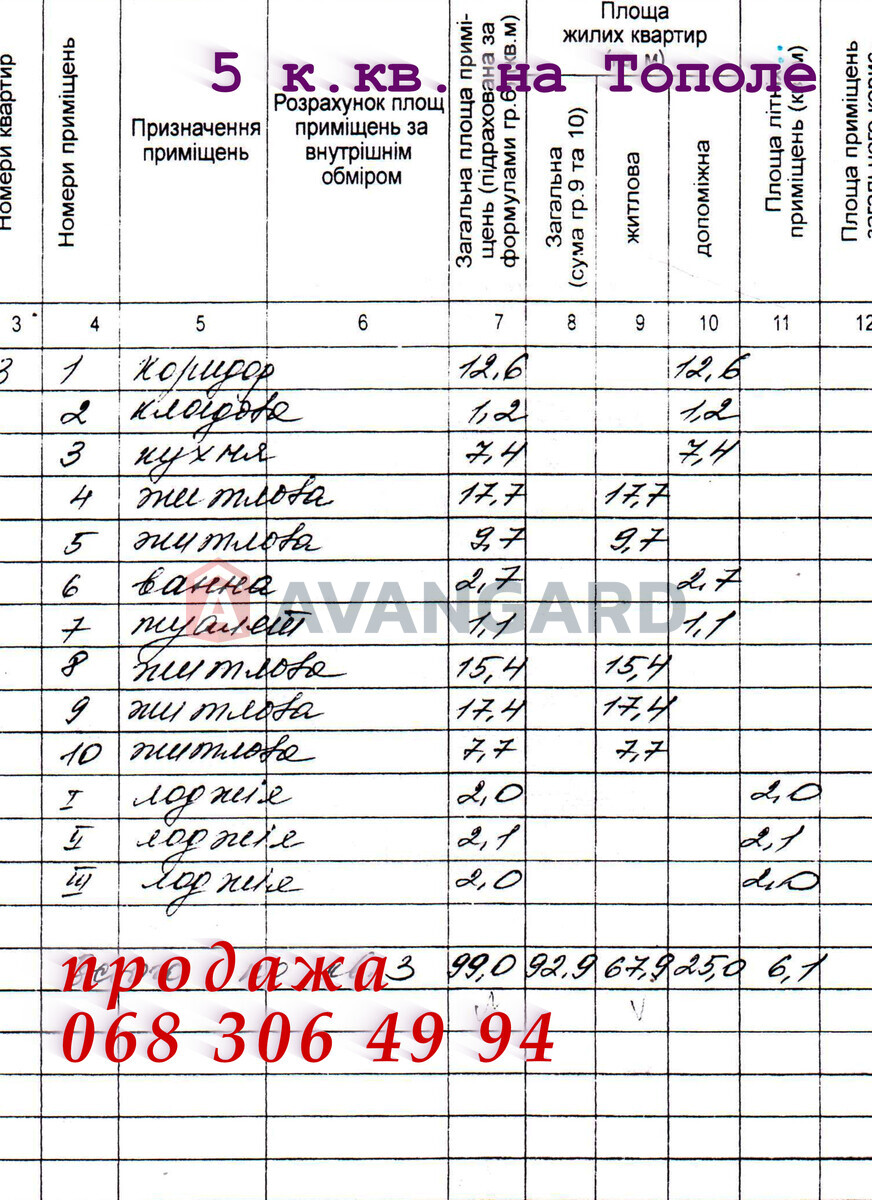 5 к.кв. на Тополе
Номери квартир
Номери приміщень
Призначення
приміщень
Розрахунок площ
приміщень за
внутрішнім
обміром
Загальна площа примі-
щень (підрахована за
формулами гр.6) кв.м)
Площа
жилих квартир
м)
Загальна
(сума гр.9 та 10)
житлова
допоміжна
Площа літніх
приміщень (кв.м)
Площа приміщень
3 4 5 6 7 8 9 10 11 12
3 1 коридор 12,6 12,6
2 кладова 1,2 1,2
3 кухня 7,4 7,4
4 житлова 17,7 17,7
5 житлова 9,7 9,7
6 ванна 2,7 2,7
AVANGARD
7 туалет 1,1 1,1
8 житлова 15,4 15,4
9 житлова 17,4 17,4
10 житлова 7,7 7,7
I лоджія 2,0 2,0
II лоджія 2,1 2,1
III лоджія 2,0 2,0
3 99,0 92,9 67,9 25,0 6,1
продажа
068 306 49 94